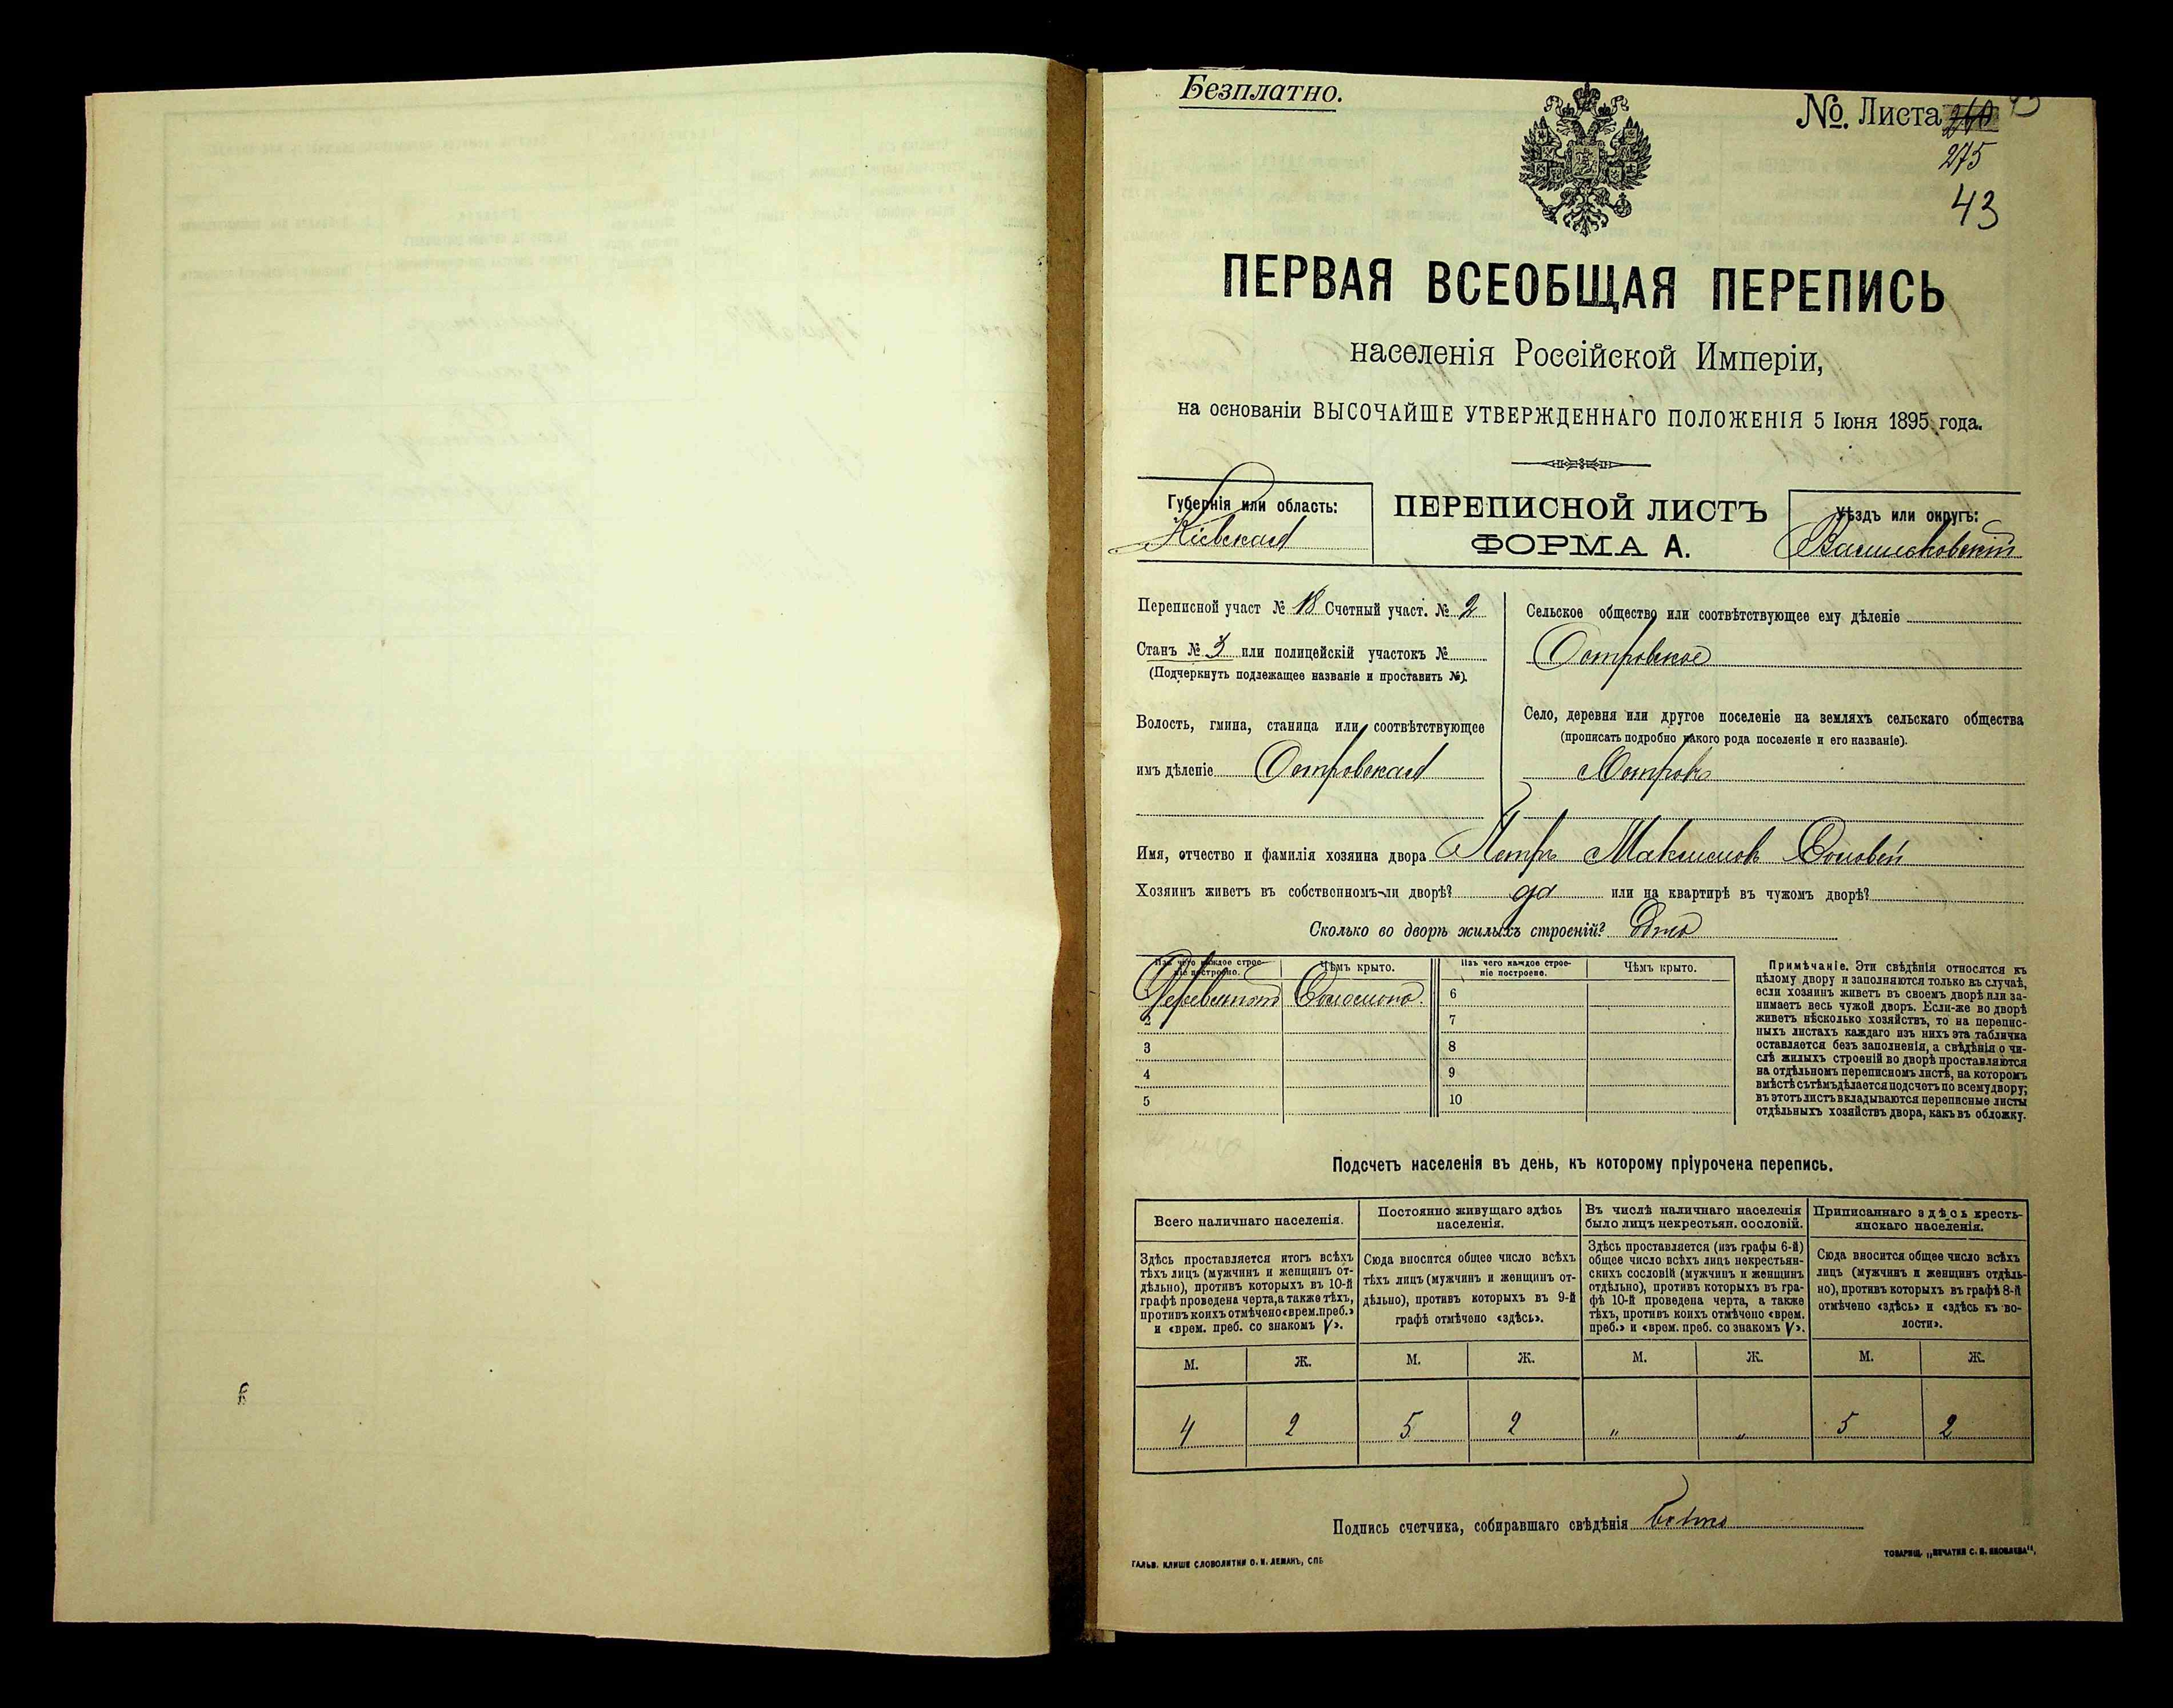 Безплатно.
№ Листа 260
275
43
ПЕРВАЯ ВСЕОБЩАЯ ПЕРЕПИСЬ
населенія Россійской Имперіи,
на основаніи ВЫСОЧАЙШЕ УТВЕРЖДЕННАГО ПОЛОЖЕНІЯ 5 Іюня 1895 года.
Губернія или область:
Кіевская
ПЕРЕПИСНОЙ ЛИСТЪ
ФОРМА А.
Уѣздъ или округъ:
Васильковскій
Переписной участ № 18 Счетный участ. № 2
Станъ № 3 или полицейскій участокъ №
(Подчеркнуть подлежащее названіе и проставить №).
Волость, гмина, станица или соотвѣтствующее
имъ дѣленіе Островская
Сельское общество или соотвѣтствующее ему дѣленіе
Островское
Село, деревня или другое поселеніе на земляхъ сельскаго общества
(прописать подробно какого рода поселеніе и его названіе).
Островъ
Имя, отчество и фамилія хозяина двора Петръ Максимовъ Соловей
Хозяинъ живетъ въ собственномъ-ли дворѣ? да или на квартирѣ въ чужомъ дворѣ?
Сколько во дворѣ жилыхъ строеній? Одно
Изъ чего каждое строе-
ніе построено.
Чѣмъ крыто.
Изъ чего каждое строе-
ніе построено.
Чѣмъ крыто.
Соломою 6
2 7
3 8
4 9
5 10
Примѣчаніе. Эти свѣдѣнія относятся къ
цѣлому двору и заполняются только въ случаѣ,
если хозяинъ живетъ въ своемъ дворѣ или за-
нимаетъ весь чужой дворъ. Если-же во дворѣ
живетъ нѣсколько хозяйствъ, то на перепис-
ныхъ листахъ каждаго изъ нихъ эта табличка
оставляется безъ заполненія, а свѣдѣнія о чи-
слѣ жилыхъ строеній во дворѣ проставляются
на отдѣльномъ переписномъ листѣ, на которомъ
вмѣстѣ съ тѣмъ дѣлается подсчетъ по всему двору;
въ этотъ листъ вкладываются переписные листы
отдѣльныхъ хозяйствъ двора, какъ въ обложку.
Подсчетъ населенія въ день, къ которому пріурочена перепись.
Всего наличнаго населенія.
Здѣсь проставляется итогъ всѣхъ
тѣхъ лицъ (мужчинъ и женщинъ от-
дѣльно), противъ которыхъ въ 10-й
графѣ проведена черта, а также тѣхъ,
противъ коихъ отмѣчено «врем. преб.»
и «врем. преб. со знакомъ V».
Постоянно живущаго здѣсь
населенія.
Сюда вносится общее число всѣхъ
тѣхъ лицъ (мужчинъ и женщинъ от-
дѣльно), противъ которыхъ въ 9-й
графѣ отмѣчено «здѣсь».
Въ числѣ наличнаго населенія
было лицъ некрестьян. сословій.
Здѣсь проставляется (изъ графы 6-й)
общее число всѣхъ лицъ некрестьян-
скихъ сословій (мужчинъ и женщинъ
отдѣльно), противъ которыхъ въ гра-
фѣ 10-й проведена черта, а также
тѣхъ, противъ коихъ отмѣчено «врем.
преб.» и «врем. преб. со знакомъ V».
Приписаннаго здѣсь кресть-
янскаго населенія.
Сюда вносится общее число всѣхъ
лицъ (мужчинъ и женщинъ отдѣль-
но), противъ которыхъ въ графѣ 8-й
отмѣчено «здѣсь» и «здѣсь къ во-
лости».
М. Ж. М. Ж. М. Ж. М. Ж.
4 2 5 2 " " 5 2
Подпись счетчика, собиравшаго свѣдѣнія
ГАЛЬВ. КЛИШЕ СЛОВОЛИТНИ О. И. ЛЕМАНЪ, СПБ
ТОВАРИЩ. „ПЕЧАТНИ С. П. ЯКОВЛЕВА“,